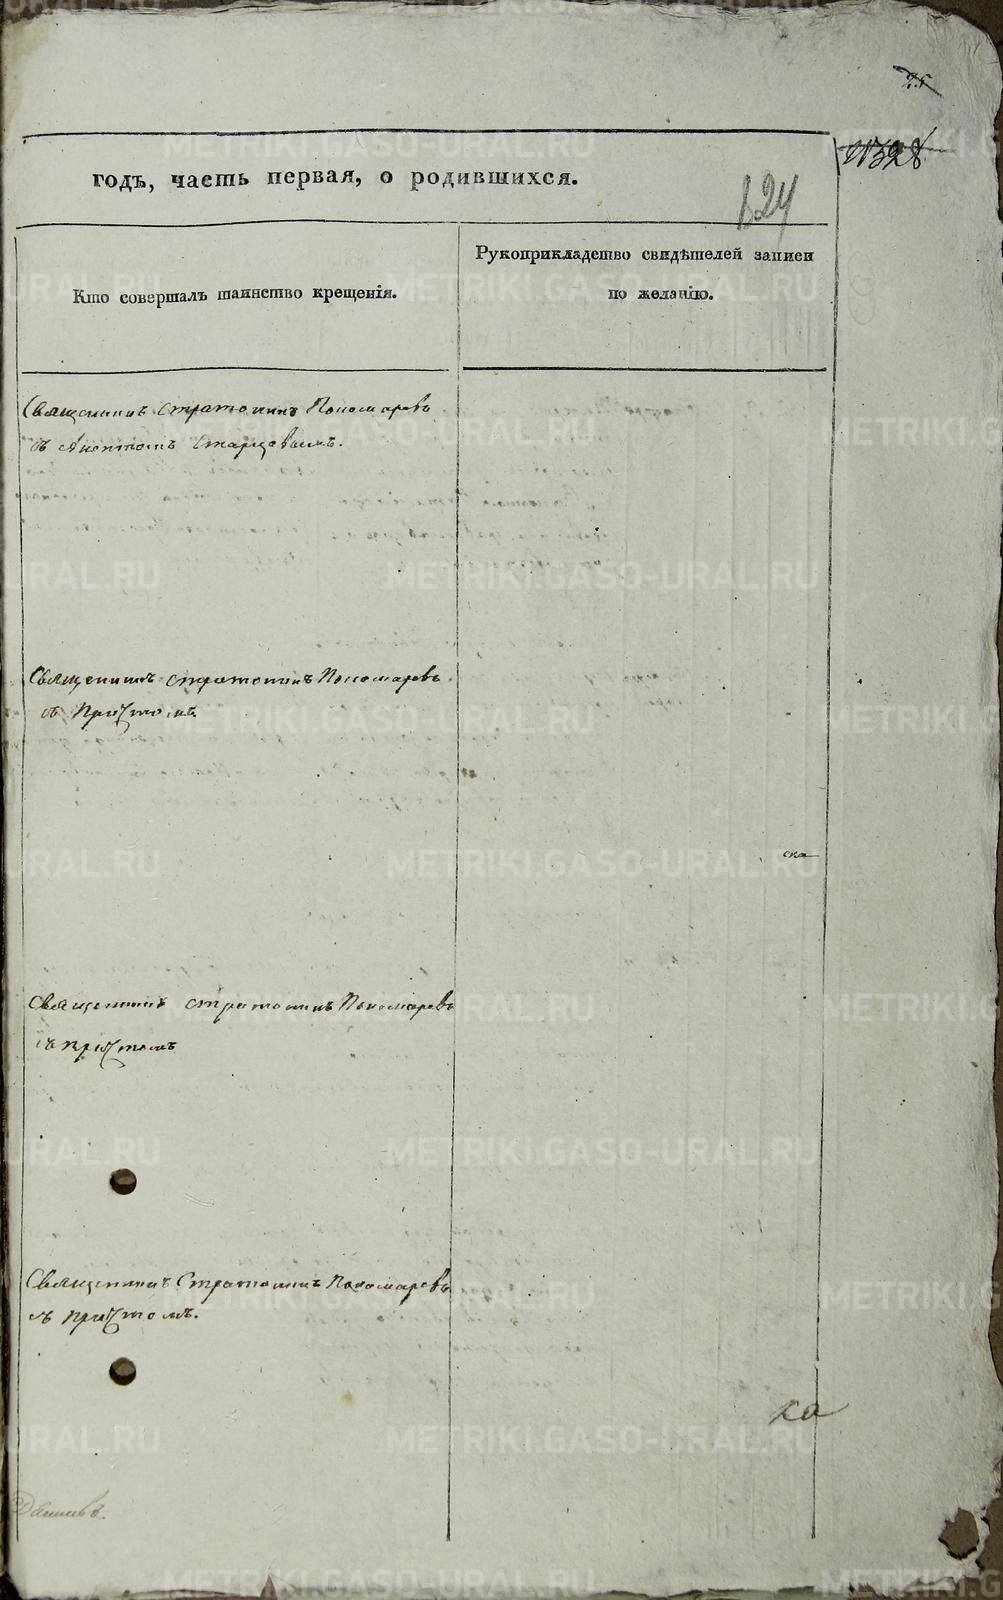 25
1328
годъ, часть первая, о родившихся.
624
Кто совершалъ таинство крещенія.
Рукоприкладство свидѣтелей записи
по желанію.
Священникъ Стратоникъ Пономаревъ
съ Старцовымъ.
Священникъ Стратоникъ Пономаревъ
съ Причтомъ
ска
Священникъ Стратоникъ Пономаревъ
съ Причтомъ
Священникъ Стратоникъ Пономаревъ
съ Причтомъ.
ка
METRIKI.GASO-URAL.RU